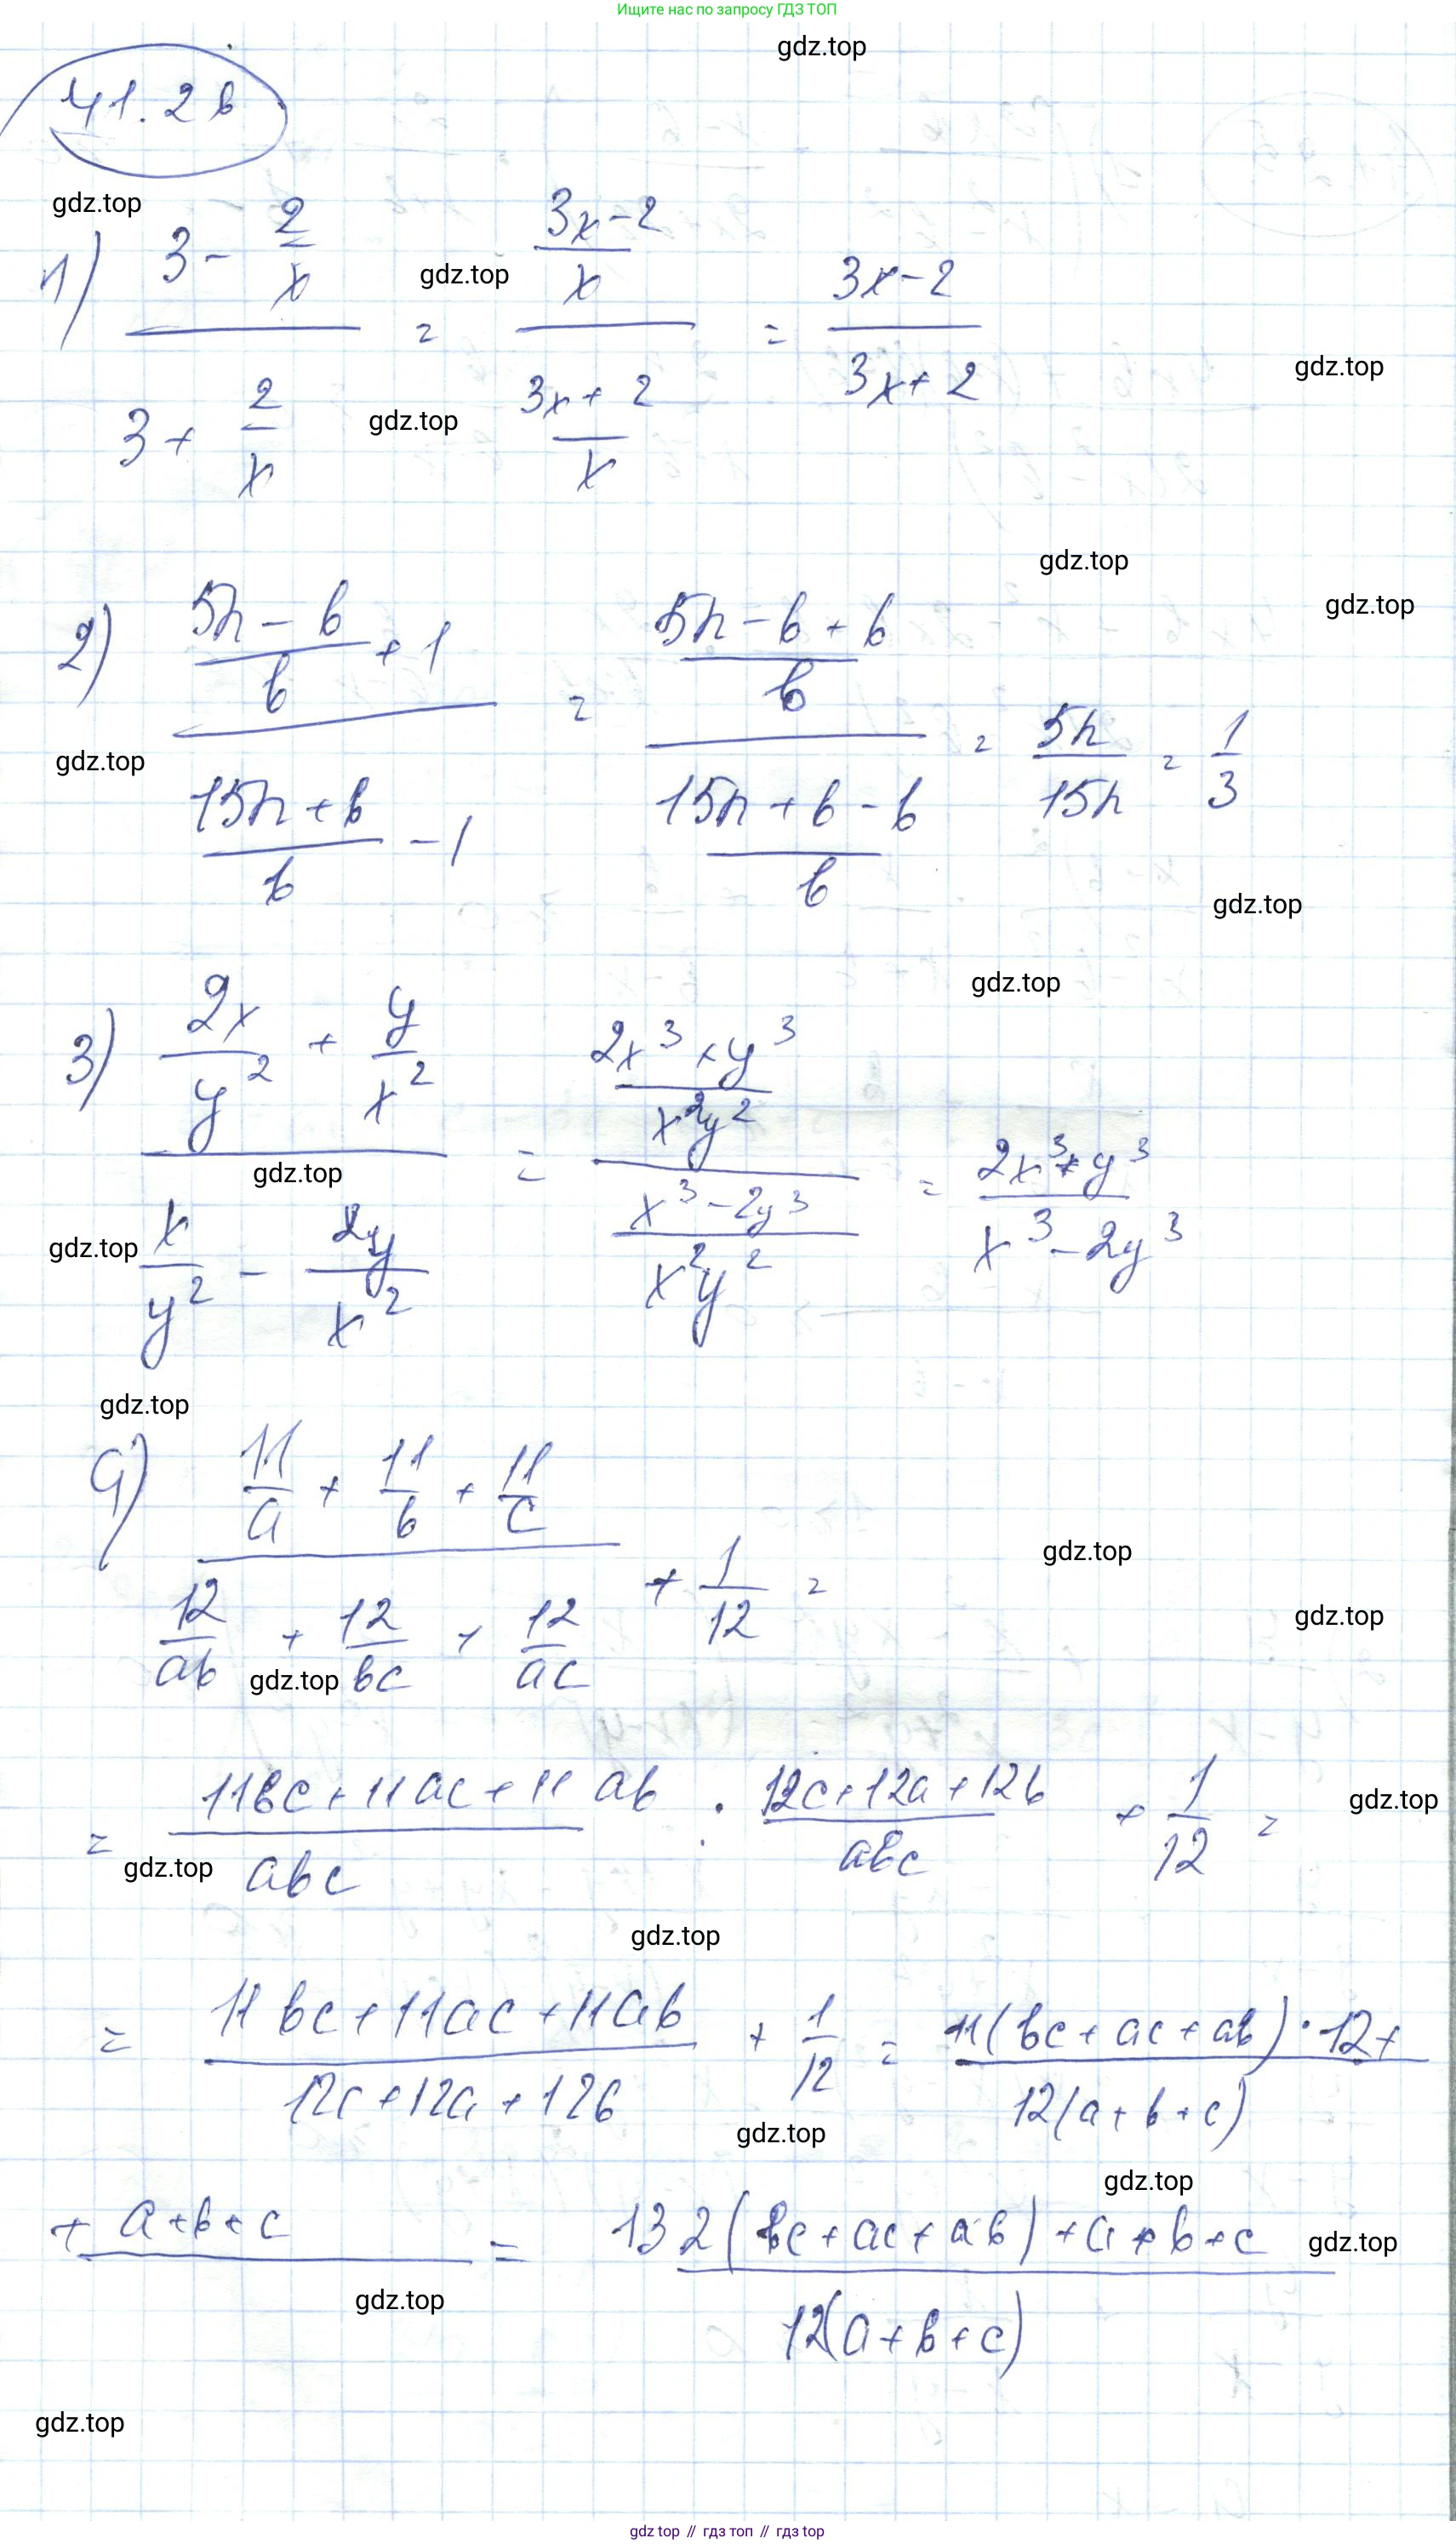 Ищите нас по запросу ГДЗ ТОП
gdz.top
41.28
gdz.top
1) (3 - 2/x)/(3 + 2/x) = ((3x-2)/x)/((3x+2)/x) = (3x-2)/(3x+2)
gdz.top
gdz.top
gdz.top
gdz.top
gdz.top
2) ((5n-b)/b + 1)/((15n+b)/b - 1) = ((5n-b+b)/b)/((15n+b-b)/b) = 5n/15n = 1/3
gdz.top
gdz.top
gdz.top
3) (2x/y² + y/x²)/(x/y² - 2y/x²) = ((2x³+y³)/(x²y²))/((x³-2y³)/(x²y²)) = (2x³+y³)/(x³-2y³)
gdz.top
gdz.top
gdz.top
4) (11/a + 11/b + 11/c)/(12/ab + 12/bc + 12/ac) + 1/12 =
gdz.top
gdz.top
gdz.top
= (11bc+11ac+11ab)/abc : (12c+12a+12b)/abc + 1/12 =
gdz.top
gdz.top
gdz.top
= (11bc+11ac+11ab)/(12c+12a+12b) + 1/12 = (11(bc+ac+ab)·12+)/(12(a+b+c))
gdz.top
gdz.top
+ a+b+c = (132(bc+ac+ab)+a+b+c)/(12(a+b+c))
gdz.top
gdz.top
gdz.top
gdz top // гдз топ // гдз top